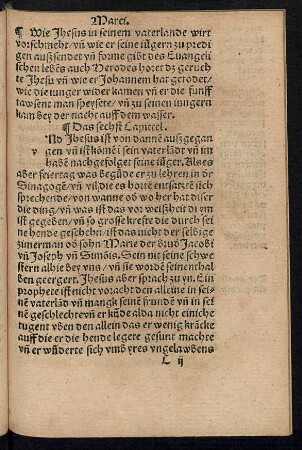 Marci.
¶ Wie Jhesus in seinem vaterlande wirt
vorschmeht/ vñ wie er seine iũgern zu predi
gen außsendet vñ forme gibt des Euangeli
schen lebēs auch Herodes horet dz geruch
te Jhesu vñ wie er Johannem hat getodet/
wie die iunger wider kamen vñ er die funff
tawsent man speysete/ vñ zu seinen iungern
kam bey der nacht auff dem wasser.
¶ Das sechst Capittel.
Nd Jhesus ist von dannē außgegan
v gen vñ ist komē i sein vaterlād vñ im
habē nachgefolget seine iũger. Als es
aber feiertag was begūde er zu lehren in dr
Sinagoge/ vñ vil die es hortē entsatzē sich
sprechende/ von wanne ob wo her hat diser
die ding/ vñ was ist das vor weißheit di ym
ist gegeben/ vñ so grosse krefte die durch sei
ne hende geschehn/ ist das nicht der selbige
zimerman ob sohn Marie der brud Jacobi
vñ Joseph vñ Simōis. Sein nit seine schwe
stern alhie bey vns/ vñ sie wordē seinenthal
ben geergert. Jhesus aber sprach zu yn. Ein
prophete ist nicht voracht den alleine in sei-
nē vaterlād vñ mangk seinē frundē vñ in sei
nē geschlechte vñ er kũde alda nicht einiche
tugent vben den allein das er wenig krācke
auff die er die hende legete gesunt machte
vñ er wũderte sich vmb yres vngelawbens
L ij